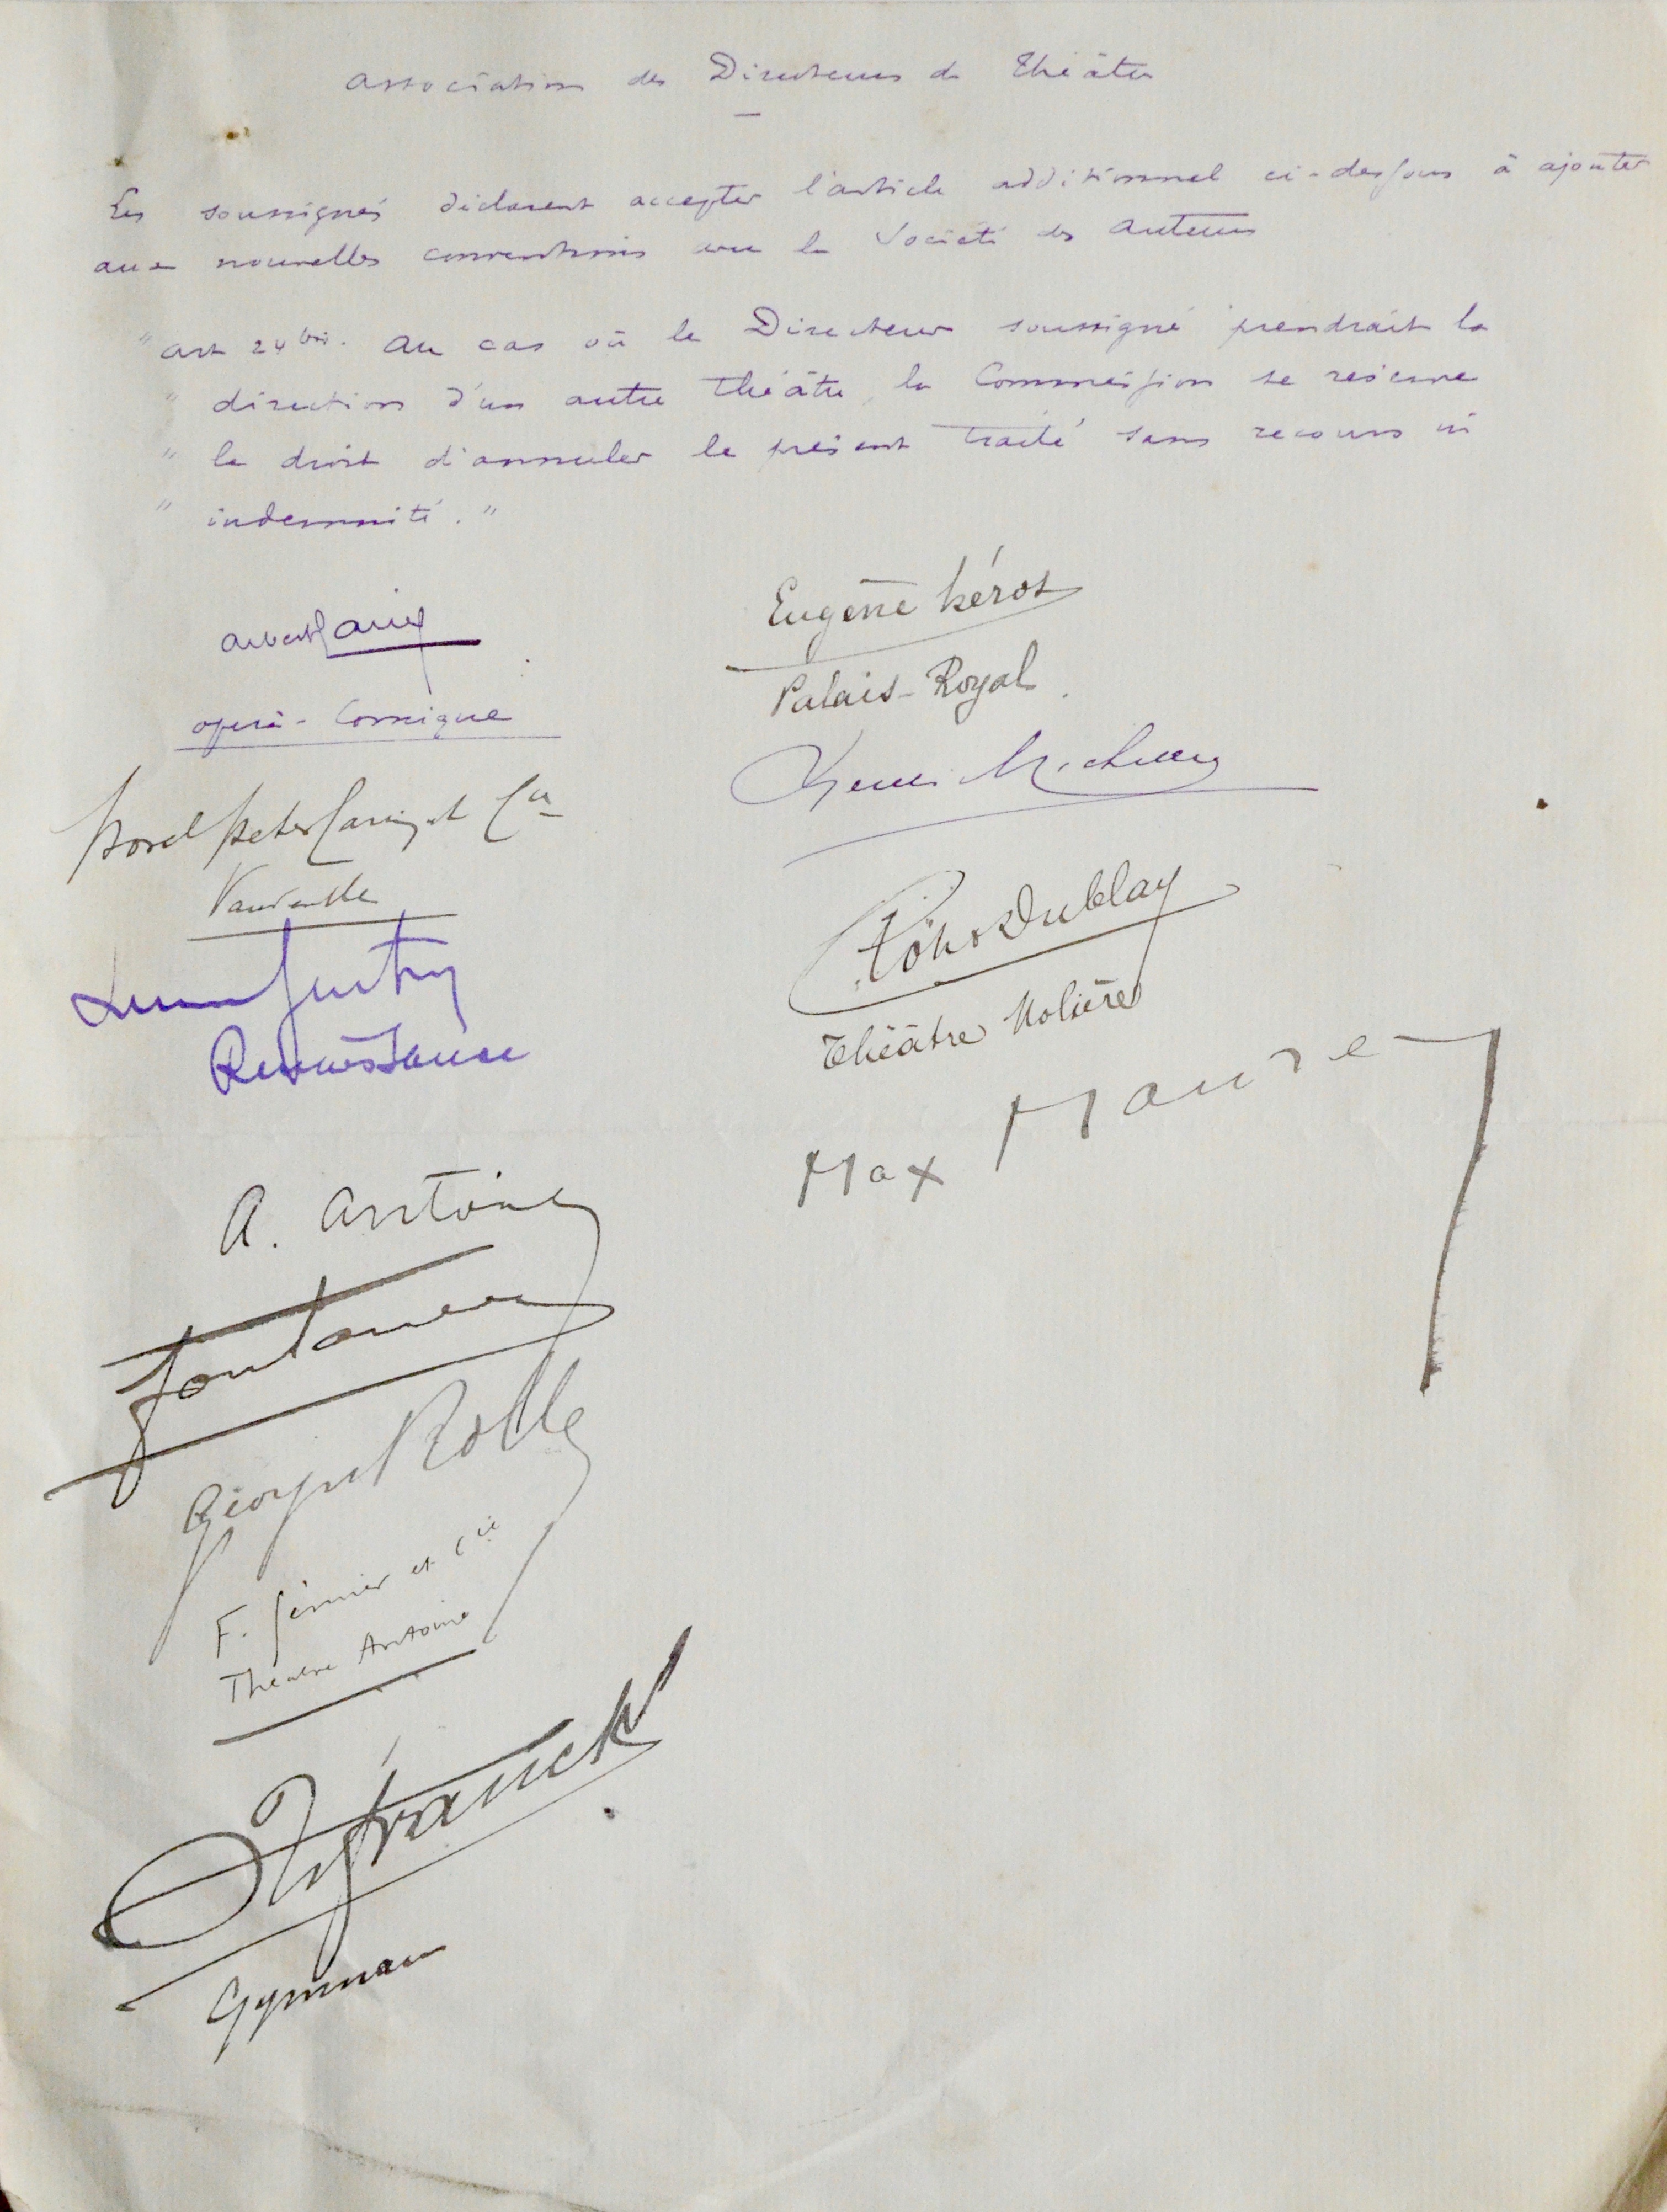 Association des Directeurs de Théâtre
Les soussignés déclarent accepter l'article additionnel ci-dessous à ajouter
aux nouvelles conventions avec la Société des Auteurs
"Art 24 bis. Au cas où le Directeur soussigné prendrait la
" direction d'un autre Théâtre, la Commission se réserve
" le droit d'annuler le présent traité sans recours ni
" indemnité. "
Albert Carré
Opéra-Comique
Porel Peter Carin et Cie
Vaudeville
Lucien Guitry
Renaissance
A. Antoine
Fontanes
Georges Rolle
F. Gémier et Cie
Théâtre Antoine
A. Franck
Gymnase
Eugène Héros
Palais-Royal
Henri Micheau
Dublay
Théâtre Molière
Max Maurey